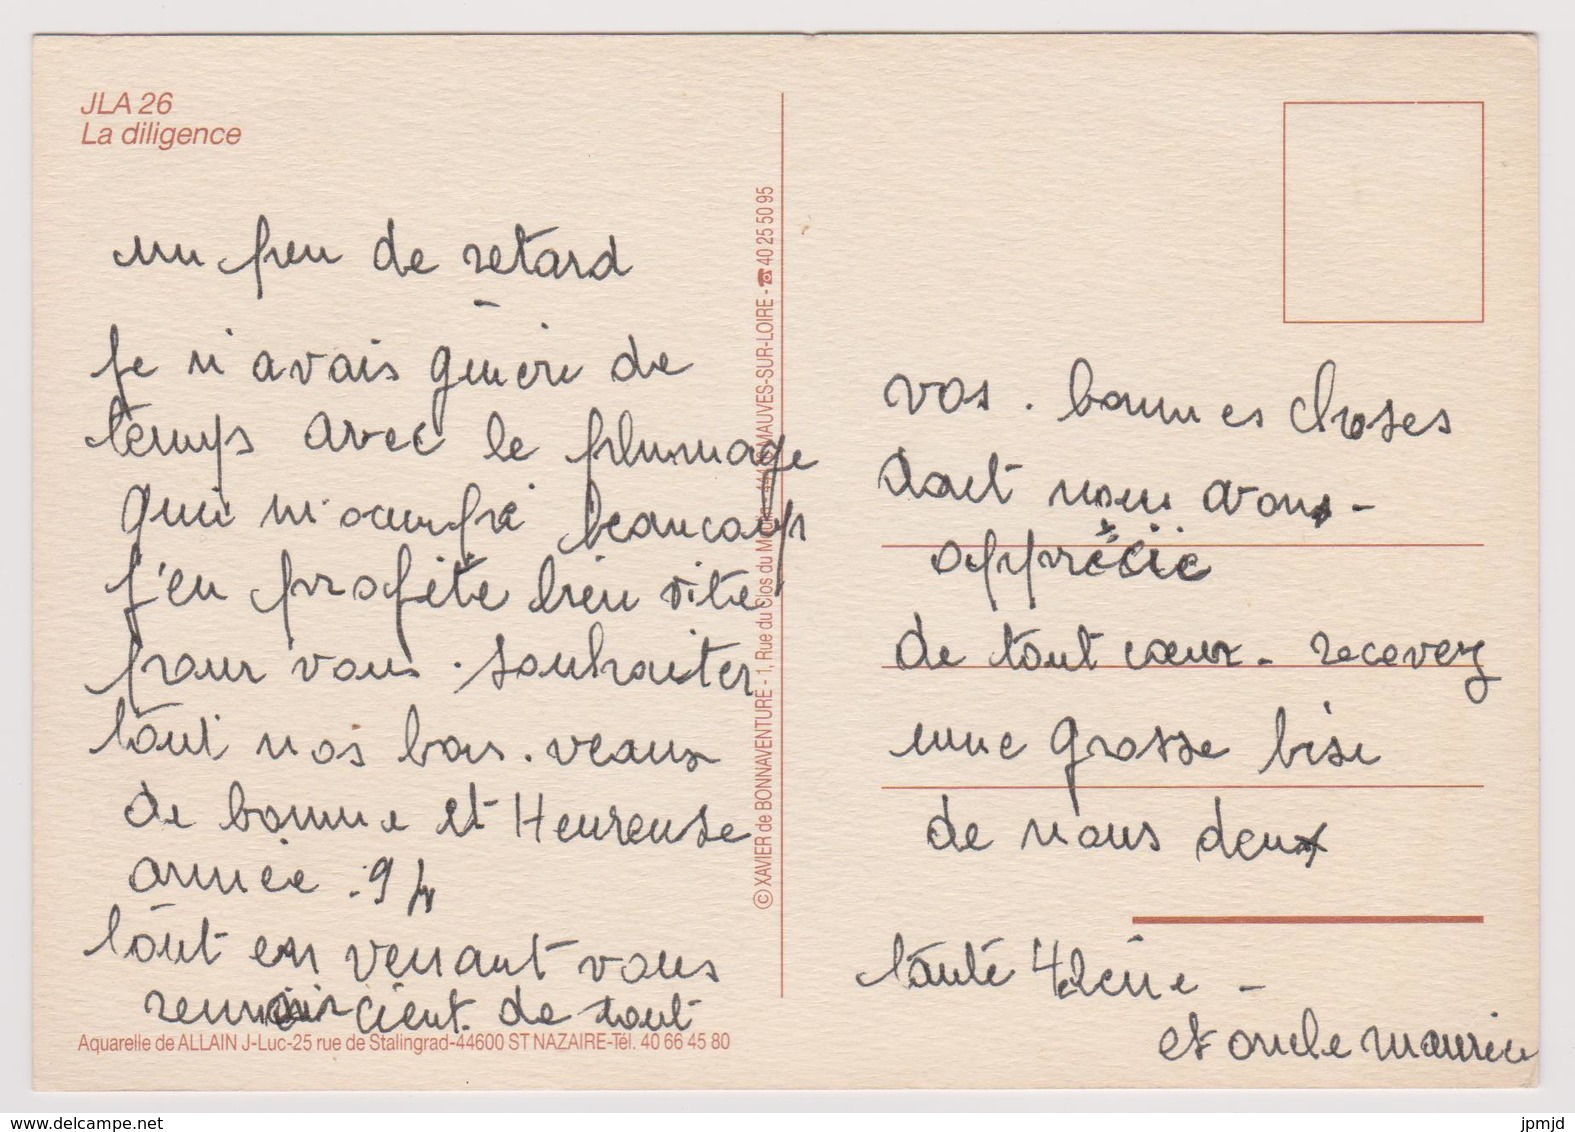 JLA 26
La diligence
un peu de retard
Je n'avais guère de
temps avec le plumage
qui m'occupé beaucoup
j'en profite bien vite
pour vous. souhaiter
tout nos bon. veaux
de bonne et Heureuse
année. 94
tout en venant vous
cient. de tout
Aquarelle de ALLAIN J-Luc-25 rue de Stalingrad-44600 ST NAZAIRE-Tél. 40 66 45 80
© XAVIER de BONNAVENTURE - 1, Rue du Clos du MAUVES-SUR-LOIRE - ☎ 40 25 50 95
vos. bonnes choses
dont nous avons-
apprécie
de tout cœur. recevez
une grosse bise
de nous deux
tante Hélène -
et oncle maurice
www.delcampe.net
jpmjd